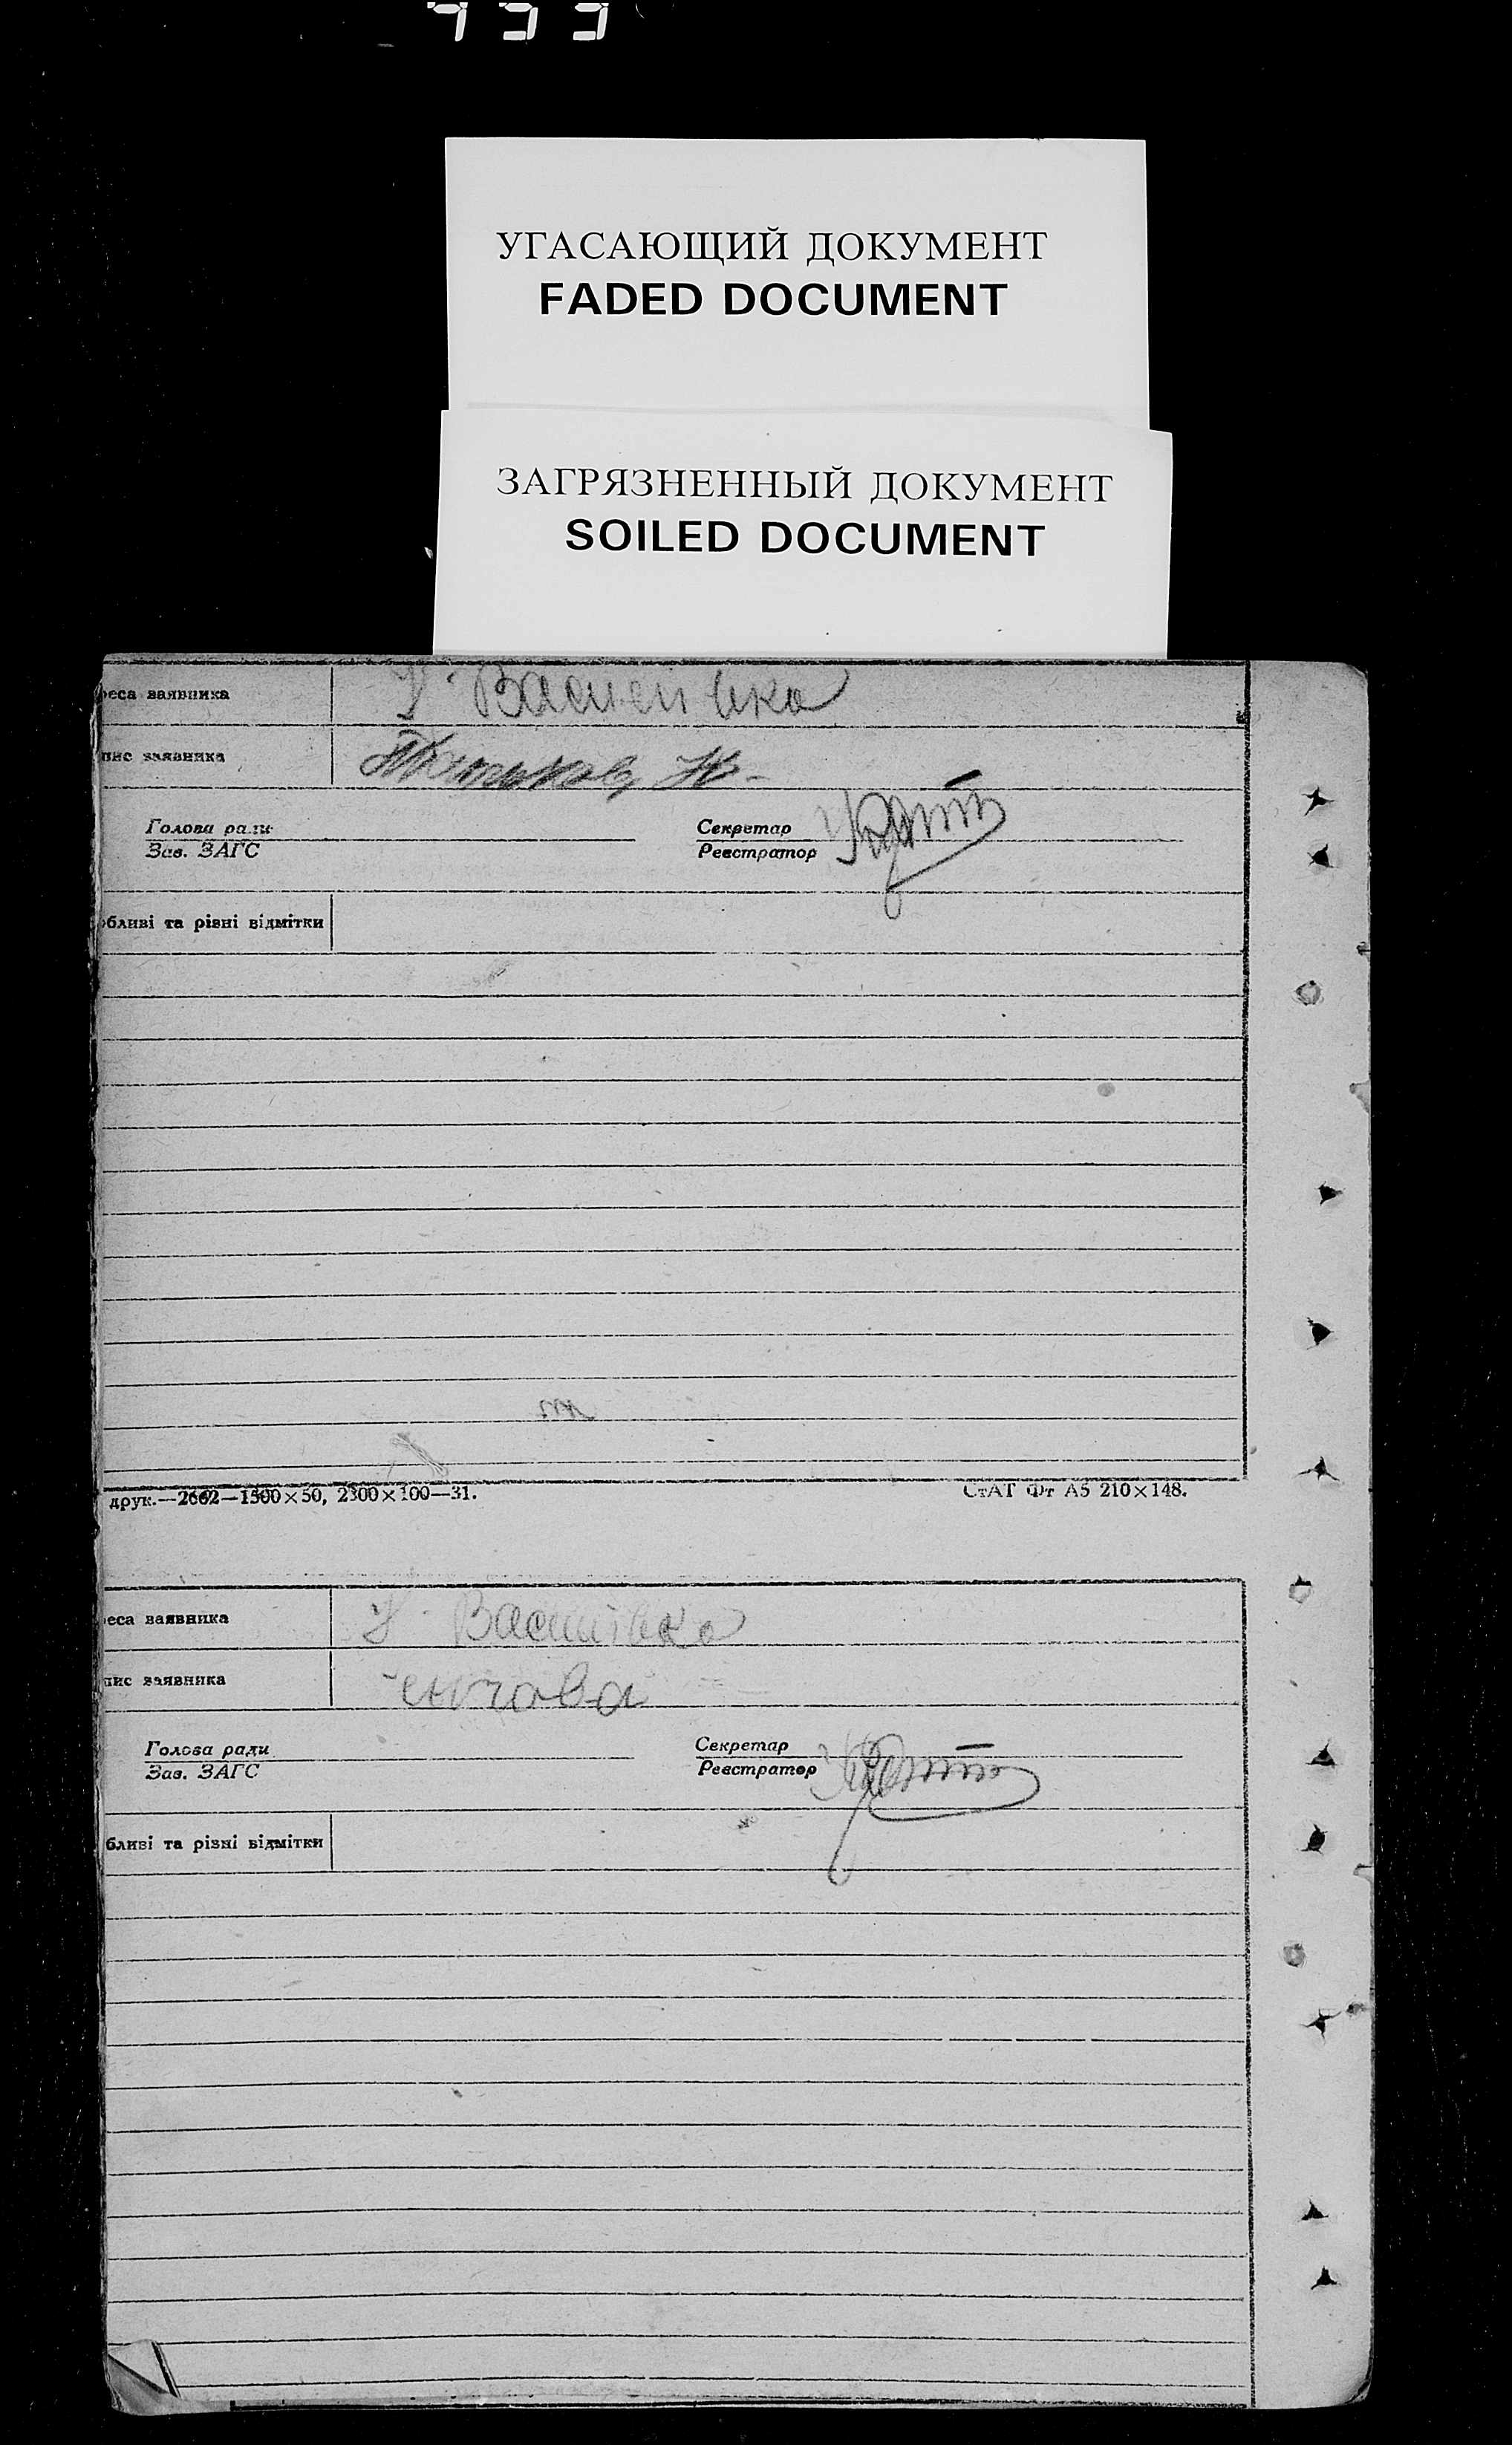 УГАСАЮЩИЙ ДОКУМЕНТ
FADED DOCUMENT
ЗАГРЯЗНЕННЫЙ ДОКУМЕНТ
SOILED DOCUMENT
реса заявника
пис заявника
Голова ради
Зав. ЗАГС
Секретар
Реєстратор
бливі та різні відмітки
друк.—2662—1500×50, 2300×100—31.
СтАТ Фт А5 210×148.
еса заявника
Василівка
пис заявника
Голова ради
Зав. ЗАГС
Секретар
Реєстратор
бливі та різні відмітки